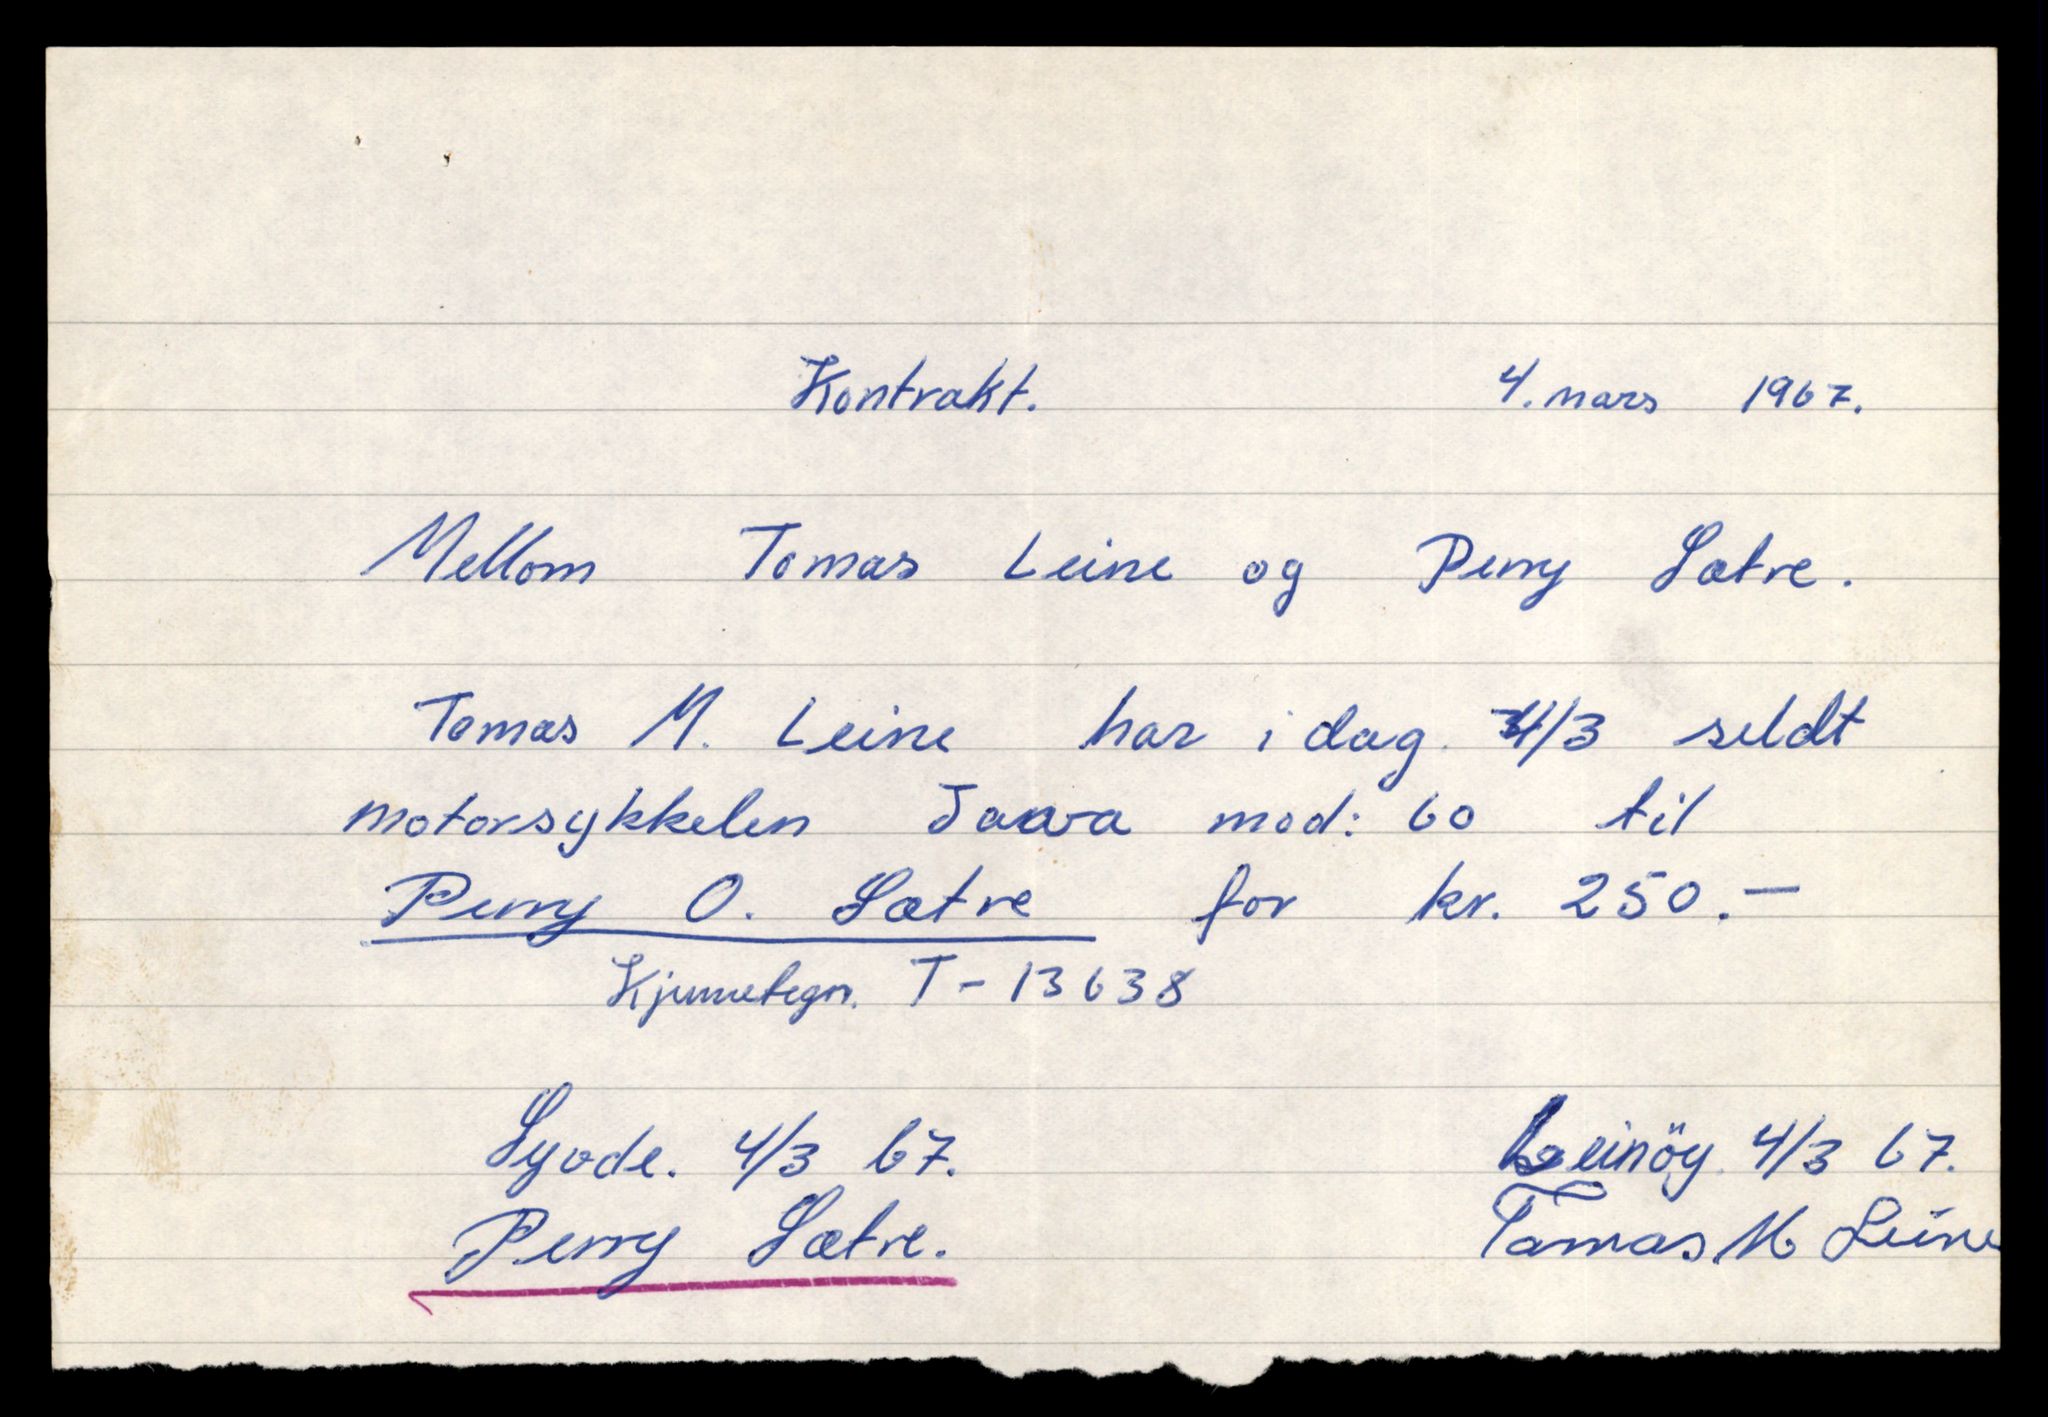 Kontrakt. 4. mars 1967.
Mellom Tomas Leine og Perry Sætre.
Tomas M. Leine har i dag 4/3 seldt
motorsykkelen Jawa mod: 60 til
Perry O. Sætre for kr. 250.—
Kjennetegn. T - 13638
Syvde. 4/3 67. Leinöy 4/3 67.
Perry Sætre. Tomas M Leine